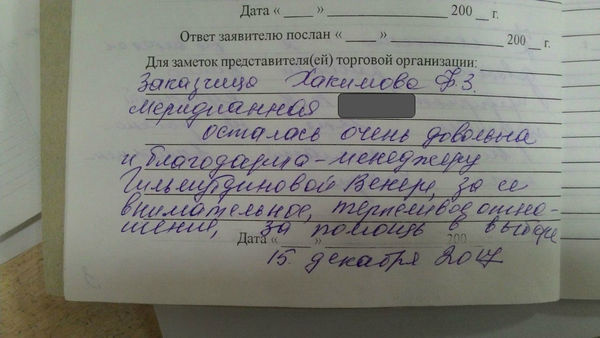 Дата « ____ » ____________________ 200 __ г.
Ответ заявителю послан « ____ » ____________________ 200 __ г.
Для заметок представителя(ей) торговой организации:
Заказчица Хакимова Ф.З.
Меридианная
осталась очень довольна
и благодарна - менеджеру
Гильмутдиновой Венере, за ее
внимательное, терпеливое отно-
шение, за помощь в выборе
Дата « ____ » 200
15 декабря 2017